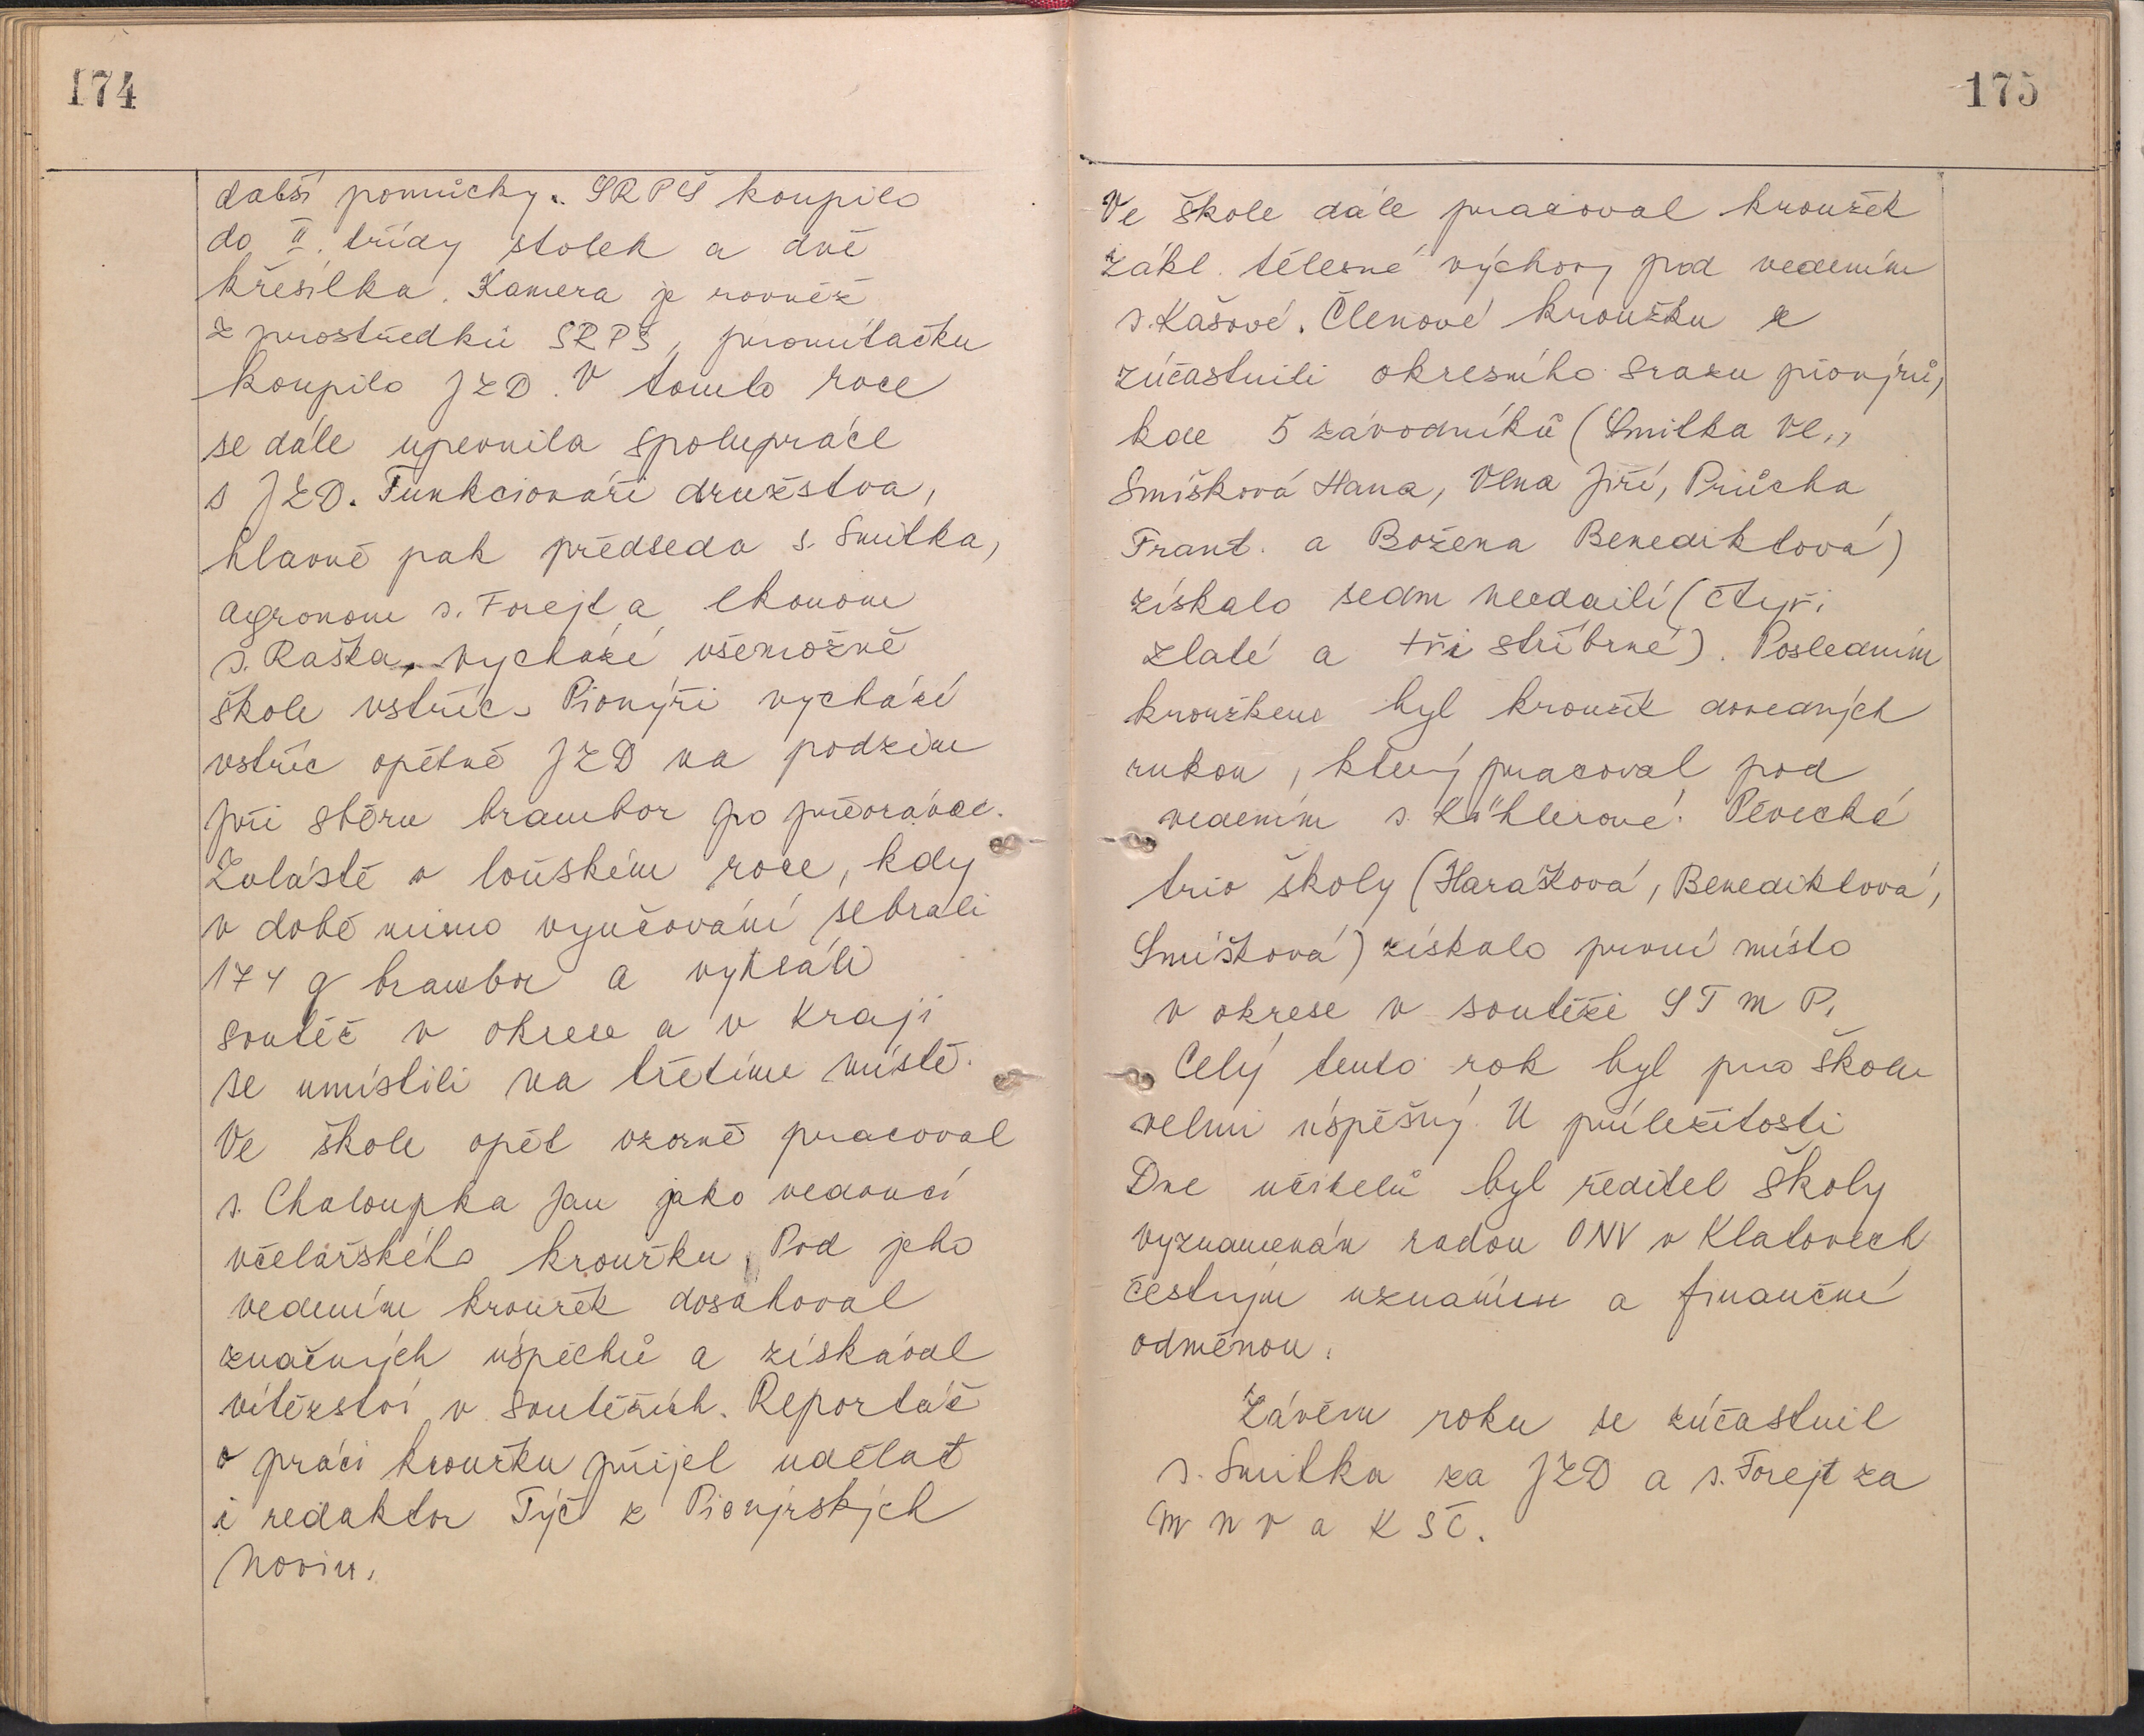 174
další pomůcky. SRPŠ koupilo
do II. třídy stolek a dvě
křesílka. Kamera je rovněž
z prostředků SRPŠ, promítačku
koupilo JZD. V tomto roce
se dále upevnila spolupráce
s JZD. Funkcionáři družstva,
hlavně pak předseda s. Smitka,
agronom s. Forejt a ekonom
s. Raška, vychází všemožně
škole vstříc. Pionýři vychází
vstříc opětně JZD na podzim
při sběru brambor po přeorávce.
Zvláště v loňském roce, kdy
v době mimo vyučování sebrali
174 q brambor a vyhráli
soutěž v okrese a v kraji
se umístili na třetím místě.
Ve škole opět vzorně pracoval
s. Chaloupka Jan jako vedoucí
včelařského kroužku. Pod jeho
vedením kroužek dosahoval
značných úspěchů a získával
vítězství v soutěžích. Reportáž
o práci kroužku přijel udělat
i redaktor Týč z Pionýrských
novin.
175
Ve škole dále pracoval kroužek
zákl. tělesné výchovy pod vedením
s. Kašové. Členové kroužku se
zúčastnili okresního srazu pionýrů,
kde 5 závodníků (Smitka Vl.,
Smíšková Hana, Vlna Jiří, Průcha
Frant. a Božena Benediktová)
získalo sedm medailí (čtyři
zlaté a tři stříbrné). Posledním
kroužkem byl kroužek dovedných
rukou, který pracoval pod
vedením s. Köhlerové. Pěvecké
trio školy (Harašková, Benediktová,
Smíšková) získalo první místo
v okrese v soutěži STMP.
Celý tento rok byl pro školu
velmi úspěšný. U příležitosti
Dne učitelů byl ředitel školy
vyznamenán radou ONV v Klatovech
čestným uznáním a finanční
odměnou.
Závěru roku se zúčastnil
s. Smitka za JZD a s. Forejt za
MNV a KSČ.